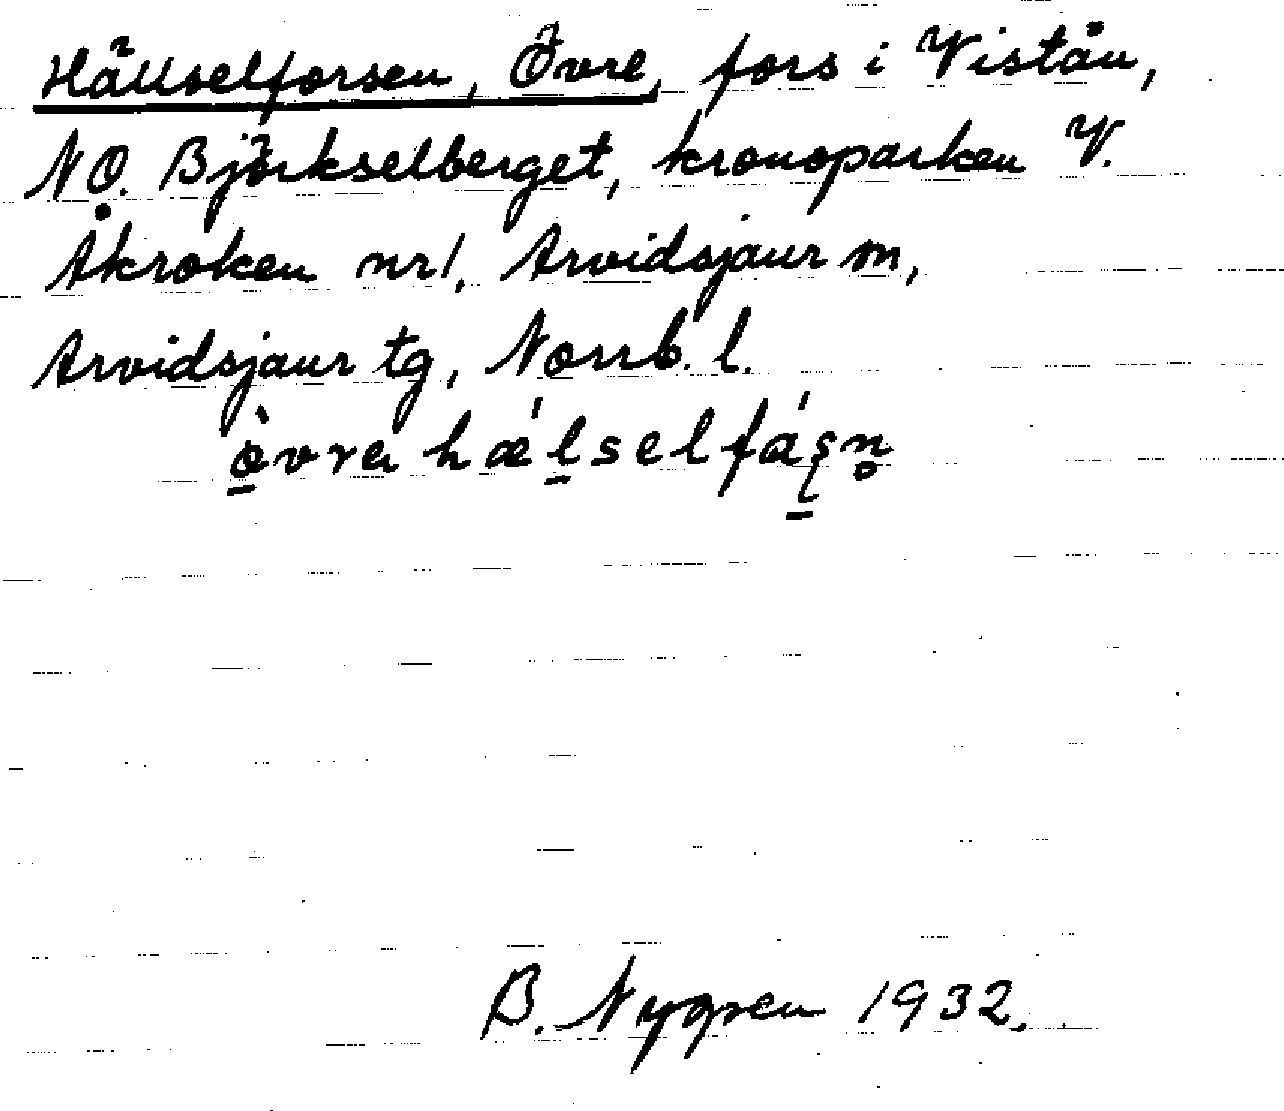 Hällselforsen, Övre, fors i Viståu,
NO. Björkselberget, kronoparken V.
Åkroken nr 1, Arvidsjaur m,
Arvidsjaur tg, Norrb. l.
B. Nygren 1932.